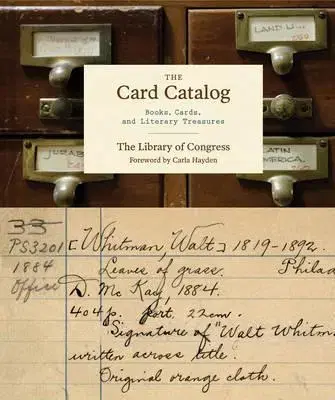 LAND LI...
THE
Card Catalog
Books, Cards,
and Literary Treasures
The Library of Congress
Foreword by Carla Hayden
JURA
LATIN
AMERICA.
33
PS3201 [Whitman, Walt] 1819-1892.
1884 Leaves of grass. Philad
Office D. McKay, 1884.
404 p. port. 22cm.
Signature of "Walt Whitm
written across title.
Original orange cloth.